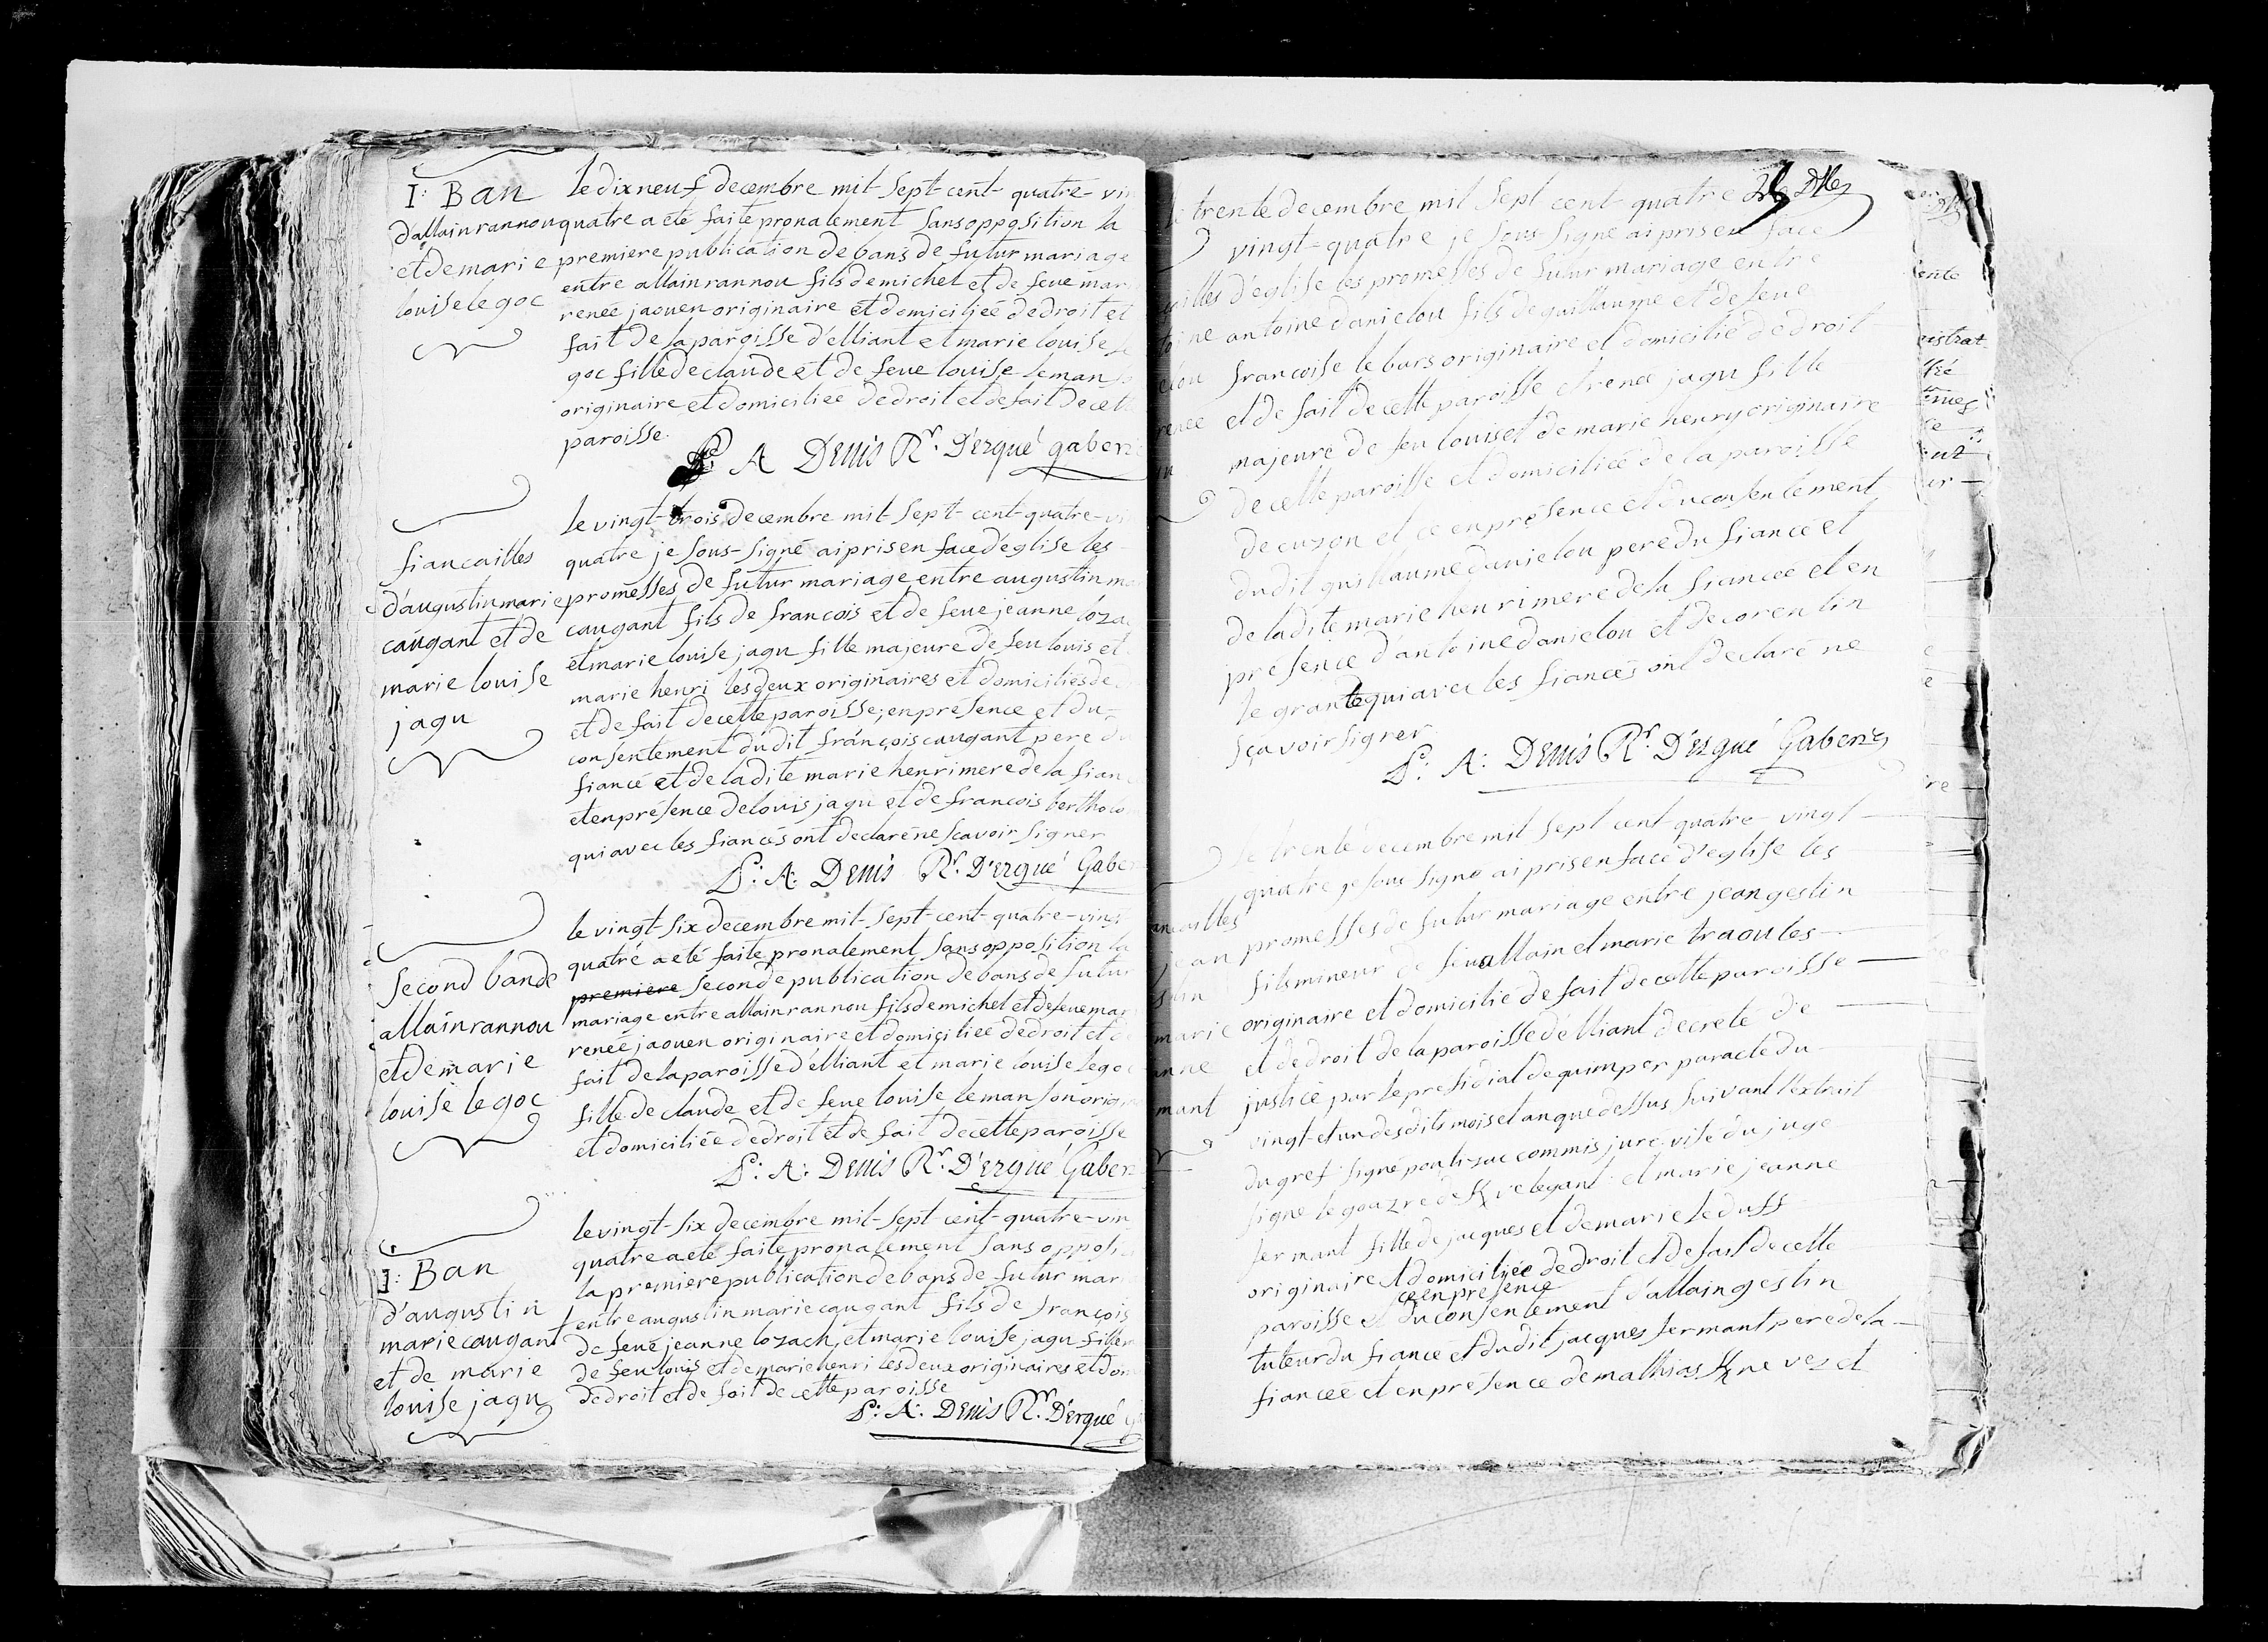 I: Ban
d'allain rannou
et de marie
louise le goc
le dix neuf decembre mil sept cent quatre-vin
quatre a eté faite pronalement sans opposition la
premiere publication de bans de futur mariage
entre allain rannou fils de michel et de feue mari
renée jaouen originaire et domiciliée de droit et
fait de la paroisse d'elliant et marie louise le
goc fille de claude et de feue louise le man
originaire et domiciliée de droit et de fait de cett
paroisse.
A Denis Rr. D'ergué gaberi
fiancailles
d'augustin marie
caugant et de
marie louise
jagu
le vingt-trois decembre mil sept cent quatre-vi
quatre je sous-signé ai pris en face d'eglise les
promesses de futur mariage entre augustin ma
caugant fils de francois et de feue jeanne loza
et marie louise jagu fille majeure de feu louis et
marie henri les deux originaires et domiciliés de
et de fait de cette paroisse; en présence et du
consentement du dit françois caugant pere du
fiancé et de la dite marie henri mere de la fian
et en présence de louis jagu et de francois bertholo
qui avec les fiancés ont declaré ne sçavoir signer
A: Denis Rr. D'ergué Gabe
second ban de
allain rannou
et de marie
louise le goc
le vingt-six decembre mil sept-cent-quatre-vingt
quatre a eté faite pronalement sans opposition la
premiere seconde publication de bans de futur
mariage entre allain rannou fils de michel et de feue mar
renée jaouen originaire et domiciliée de droit et d
fait de la paroisse d'elliant et marie louise le goc
fille de claude et de feue louise le manson orig
et domiciliée de droit et de fait de cette paroisse
A: Denis Rr. D'ergué Gaber
I: Ban
d'augustin
marie caugant
et de marie
louise jagu
le vingt-six decembre mil-sept cent-quatre-vin
quatre a eté faite pronalement sans opposi
la premiere publication de bans de futur mar
entre augustin marie caugant fils de françois
de feue jeanne lozach et marie louise jagu fille
de feu louis et de marie henri les deux originaires et dom
de droit et de fait de cette paroisse
A: Denis Rr. D'ergué
trente decembre mil sept cent quatre
vingt-quatre je sous-signé ai pris en face
d'eglise les promesses de futur mariage entre
antoine danielou fils de guillaume et de feue
francoise le bars originaire et domicilié de droit
et de fait de cette paroisse et renee jagu fille
majeure de feu louis et de marie henry originaire
de cette paroisse et domiciliée de la paroisse
de cuzon et ce en présence et du consentement
du dit guillaume danielou pere du fiancé et
de la dite marie henri mere de la fiancée et en
présence d'antoine danielou et de corentin
le grand qui avec les fiancés ont declaré ne
sçavoir signer
A: Denis Rr. D'ergué Gaberic
le trente decembre mil sept cent quatre-vingt
quatre je sous signé ai pris en face d'eglise les
promesses de futur mariage entre jean gestin
fils mineur de feu allain et marie traoules
originaire et domicilié de fait de cette paroisse
et de droit de la paroisse d'elliant decreté de
justice par le presidial de quimper par acte du
vingt-et-un desdits mois et an que dessus suivant l'extrait
du gref signé commis juré visé du juge
signe le gouzre de et marie jeanne
fermant fille de jacques et de marie le duff
originaire et domiciliée de droit et de fait de cette
ce en présence
paroisse et du consentement d'allain gestin
tuteur du fiance et dudit jacques fermant pere de la
fiancée et en présence de mathias Kneves et